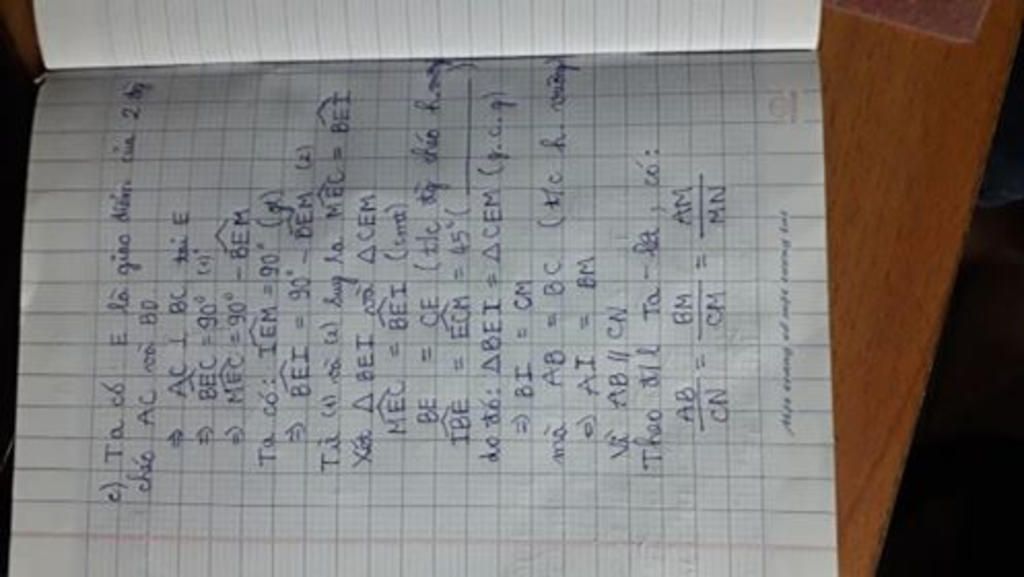 c) Ta có E là giao điểm của 2 đg
chéo AC và BD
⇒ AC ⊥ BC tại E
⇒ BEC = 90° (1)
⇒ MEC = 90° - BEM
Ta có: IEM = 90° (gt)
⇒ BEI = 90° - BEM (2)
Từ (1) và (2) suy ra MEC = BEI
Xét Δ BEI và Δ CEM
MEC = BEI (cmt)
BE = CE (t/c đg chéo h.vuông
IBE = ECM = 45° ( )
do đó: Δ BEI = Δ CEM (g.c.g)
⇒ BI = CM
mà AB = BC (t/c h. vuông)
⇒ AI = BM
Vì AB // CN
Theo đ/l Ta - lét, có:
AB/CN = BM/CM = AM/MN